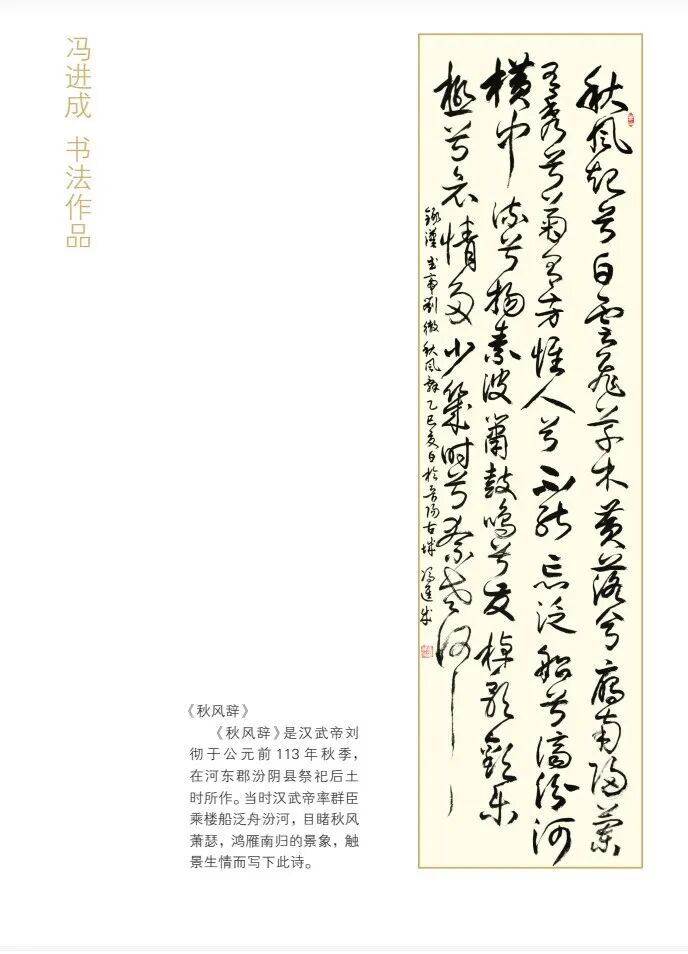 冯进成 书法作品
秋風起兮白雲飛草木黄落兮鴈南歸蘭
有秀兮菊有芳惟人兮不能忘泛船兮濟汾河
横中流兮揚素波簫鼓鳴兮發棹歌歡樂
極兮哀情多少幾時兮奈老何
録漢武帝劉徹秋風辭乙巳夏日於晋陽古城 冯進成
《秋风辞》
《秋风辞》是汉武帝刘
彻于公元前113年秋季，
在河东郡汾阴县祭祀后土
时所作。当时汉武帝率群臣
乘楼船泛舟汾河，目睹秋风
萧瑟，鸿雁南归的景象，触
景生情而写下此诗。